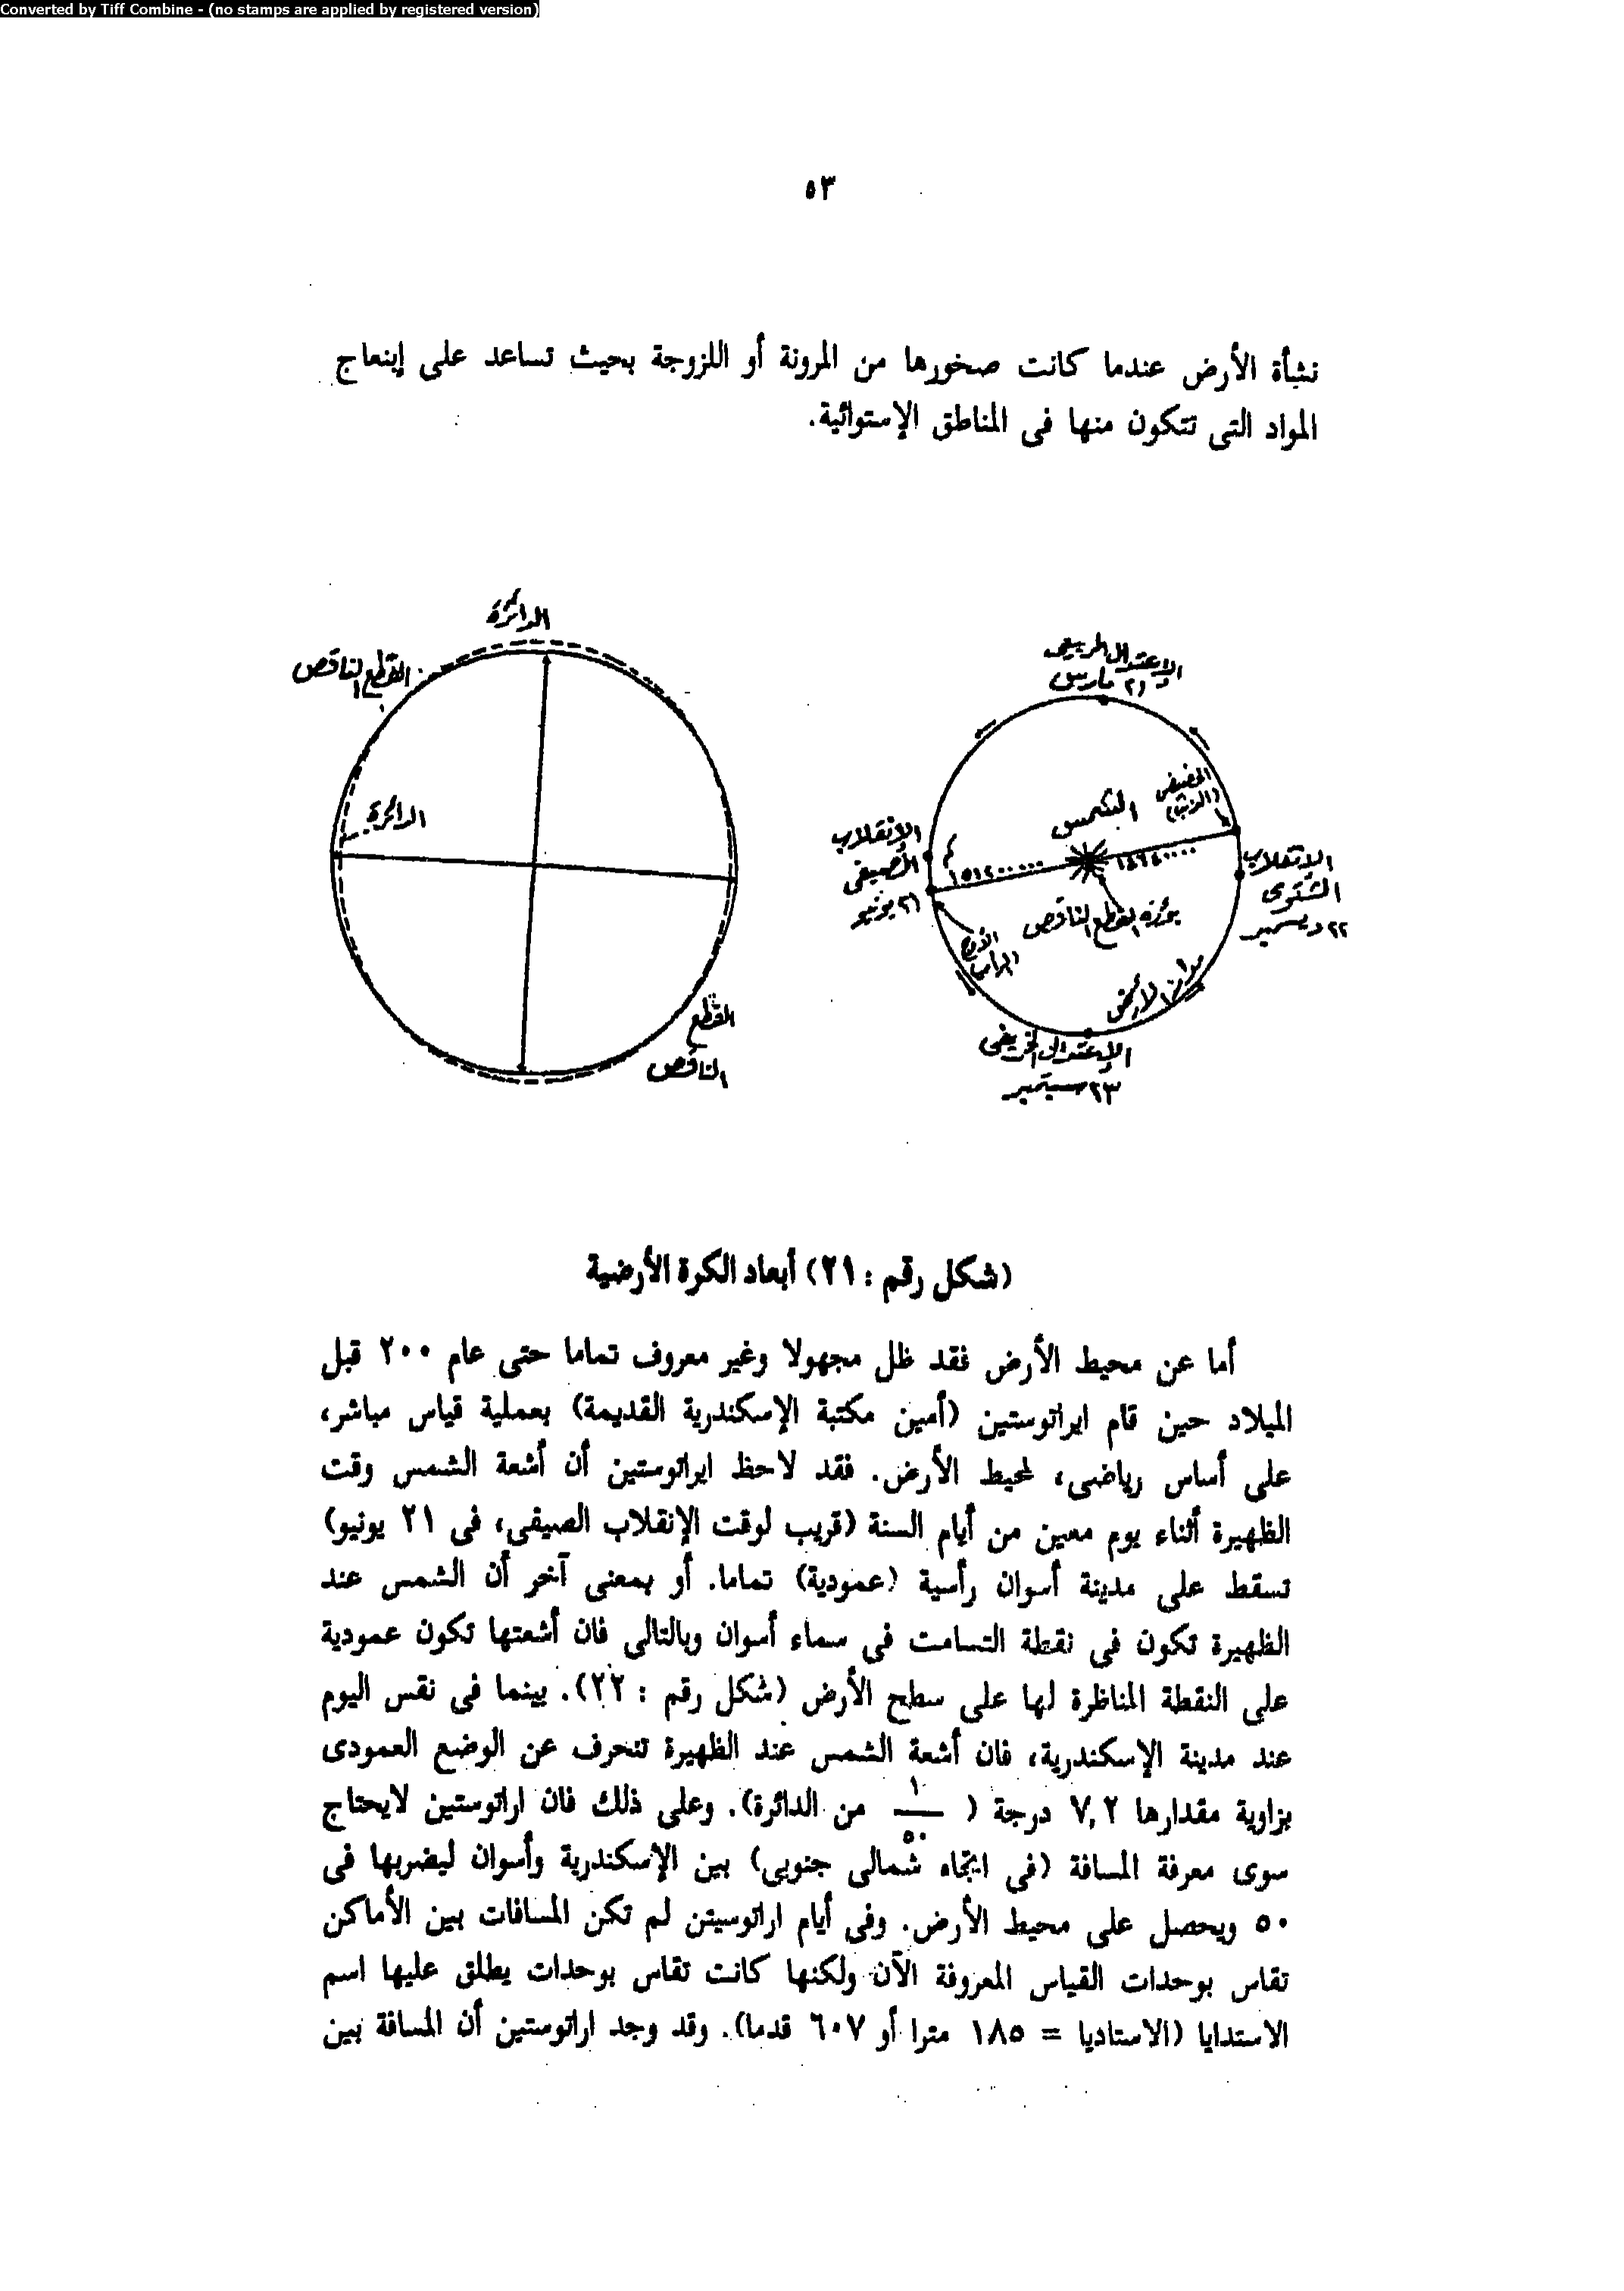 Converted by Tiff Combine - (no stamps are applied by registered version)
٥٣
نشأة الأرض عندما كانت صخورها من المرونة أو اللزوجة بحيث تساعد على إبنعاج
المواد التى تتكون منها فى المناطق الإستوائية.
الدائرة
القطع الناقص
الدائرة
القطع
الناقص
الإعتدال الربيعى
٢١ مارس
الحضيض
الشمس
الإنقلاب
الصيفى
٢١ يونيو
الإنقلاب
الشتوى
٢٢ ديسمبر
بؤرة القطع الناقص
الأوج
الإعتدال الخريفى
٢٣ سبتمبر
(شكل رقم : ٢١) أبعاد الكرة الأرضية
أما عن محيط الأرض فقد ظل مجهولا وغير معروف تماما حتى عام ٢٠٠ قبل
الميلاد حين قام ايراتوستين (أمين مكتبة الإسكندرية القديمة) بعملية قياس مباشر،
على أساس رياضى، لمحيط الأرض. فقد لاحظ ايراتوستين أن أشعة الشمس وقت
الظهيرة أثناء يوم معين من أيام السنة (قريب لوقت الإنقلاب الصيفى، فى ٢١ يونيو)
تسقط على مدينة أسوان رأسية (عمودية) تماما. أو بمعنى آخر أن الشمس عند
الظهيرة تكون فى نقطة التسامت فى سماء أسوان وبالتالى فان أشعتها تكون عمودية
على النقطة المناظرة لها على سطح الأرض (شكل رقم : ٢٢). بينما فى نفس اليوم
عند مدينة الإسكندرية، فان أشعة الشمس عند الظهيرة تنحرف عن الوضع العمودى
بزاوية مقدارها ٧,٢ درجة ( ١/٥٠ من الدائرة). وعلى ذلك فان اراتوستين لايحتاج
سوى معرفة المسافة (فى اتجاه شمالى جنوبى) بين الإسكندرية وأسوان ليضربها فى
٥٠ ويحصل على محيط الأرض. وفى أيام اراتوسيتن لم تكن المسافات بين الأماكن
تقاس بوحدات القياس المعروفة الآن ولكنها كانت تقاس بوحدات يطلق عليها اسم
الاستدايا (الاستاديا = ١٨٥ مترا أو ٦٠٧ قدما). وقد وجد اراتوستين أن المسافة بين